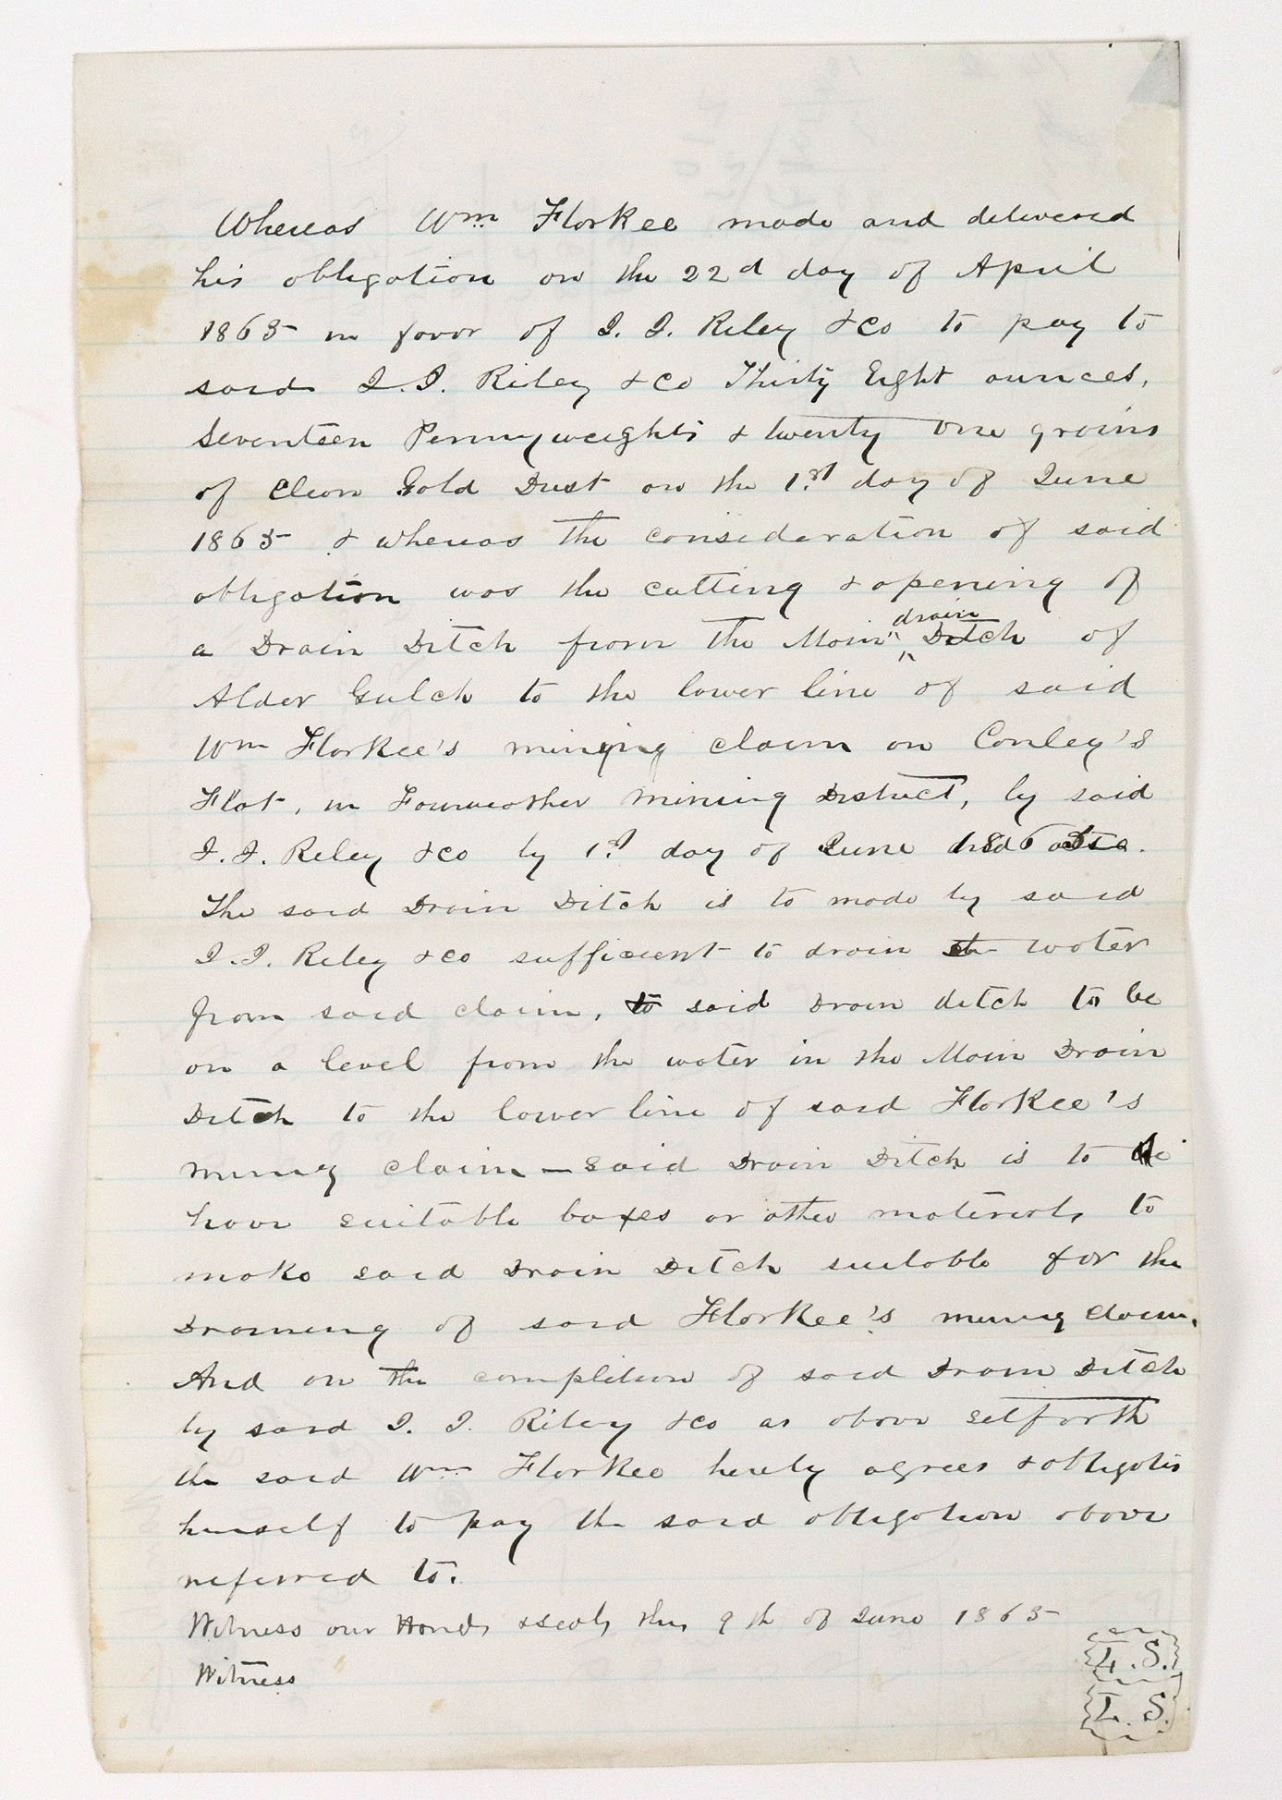 Whereas Wm Florkee made and delivered
his obligation on the 22d day of April
1865 in favor of J. J. Riley & Co to pay to
said J. J. Riley & Co Thirty Eight ounces,
Seventeen Pennyweights & twenty one grains
of Clean Gold Dust on the 1st day of June
1865 & whereas the consideration of said
obligation was the cutting & opening of
a Drain Ditch from the Main drain Ditch of
Alder Gulch to the lower line of said
Wm Florkee's mining claim on Conley's
Flat, in Fairweather Mining District, by said
J. J. Riley & Co by 1st day of June 1865
The said Drain Ditch is to made by said
J. J. Riley & Co sufficient to drain the water
from said claim, to said Drain ditch to be
on a level from the water in the Main Drain
Ditch to the lower line of said Florkee's
mining claim — Said Drain Ditch is to
have suitable boxes or other materials to
make said Drain Ditch suitable for the
Draining of said Florkee's mining claim.
And on the completion of said Drain Ditch
by said J. J. Riley & Co as above setforth
the said Wm Florkee hereby agrees & obligates
himself to pay the said obligation above
referred to.
Witness our Hands & seals this 9th of June 1865
Witness
L.S.
L.S.